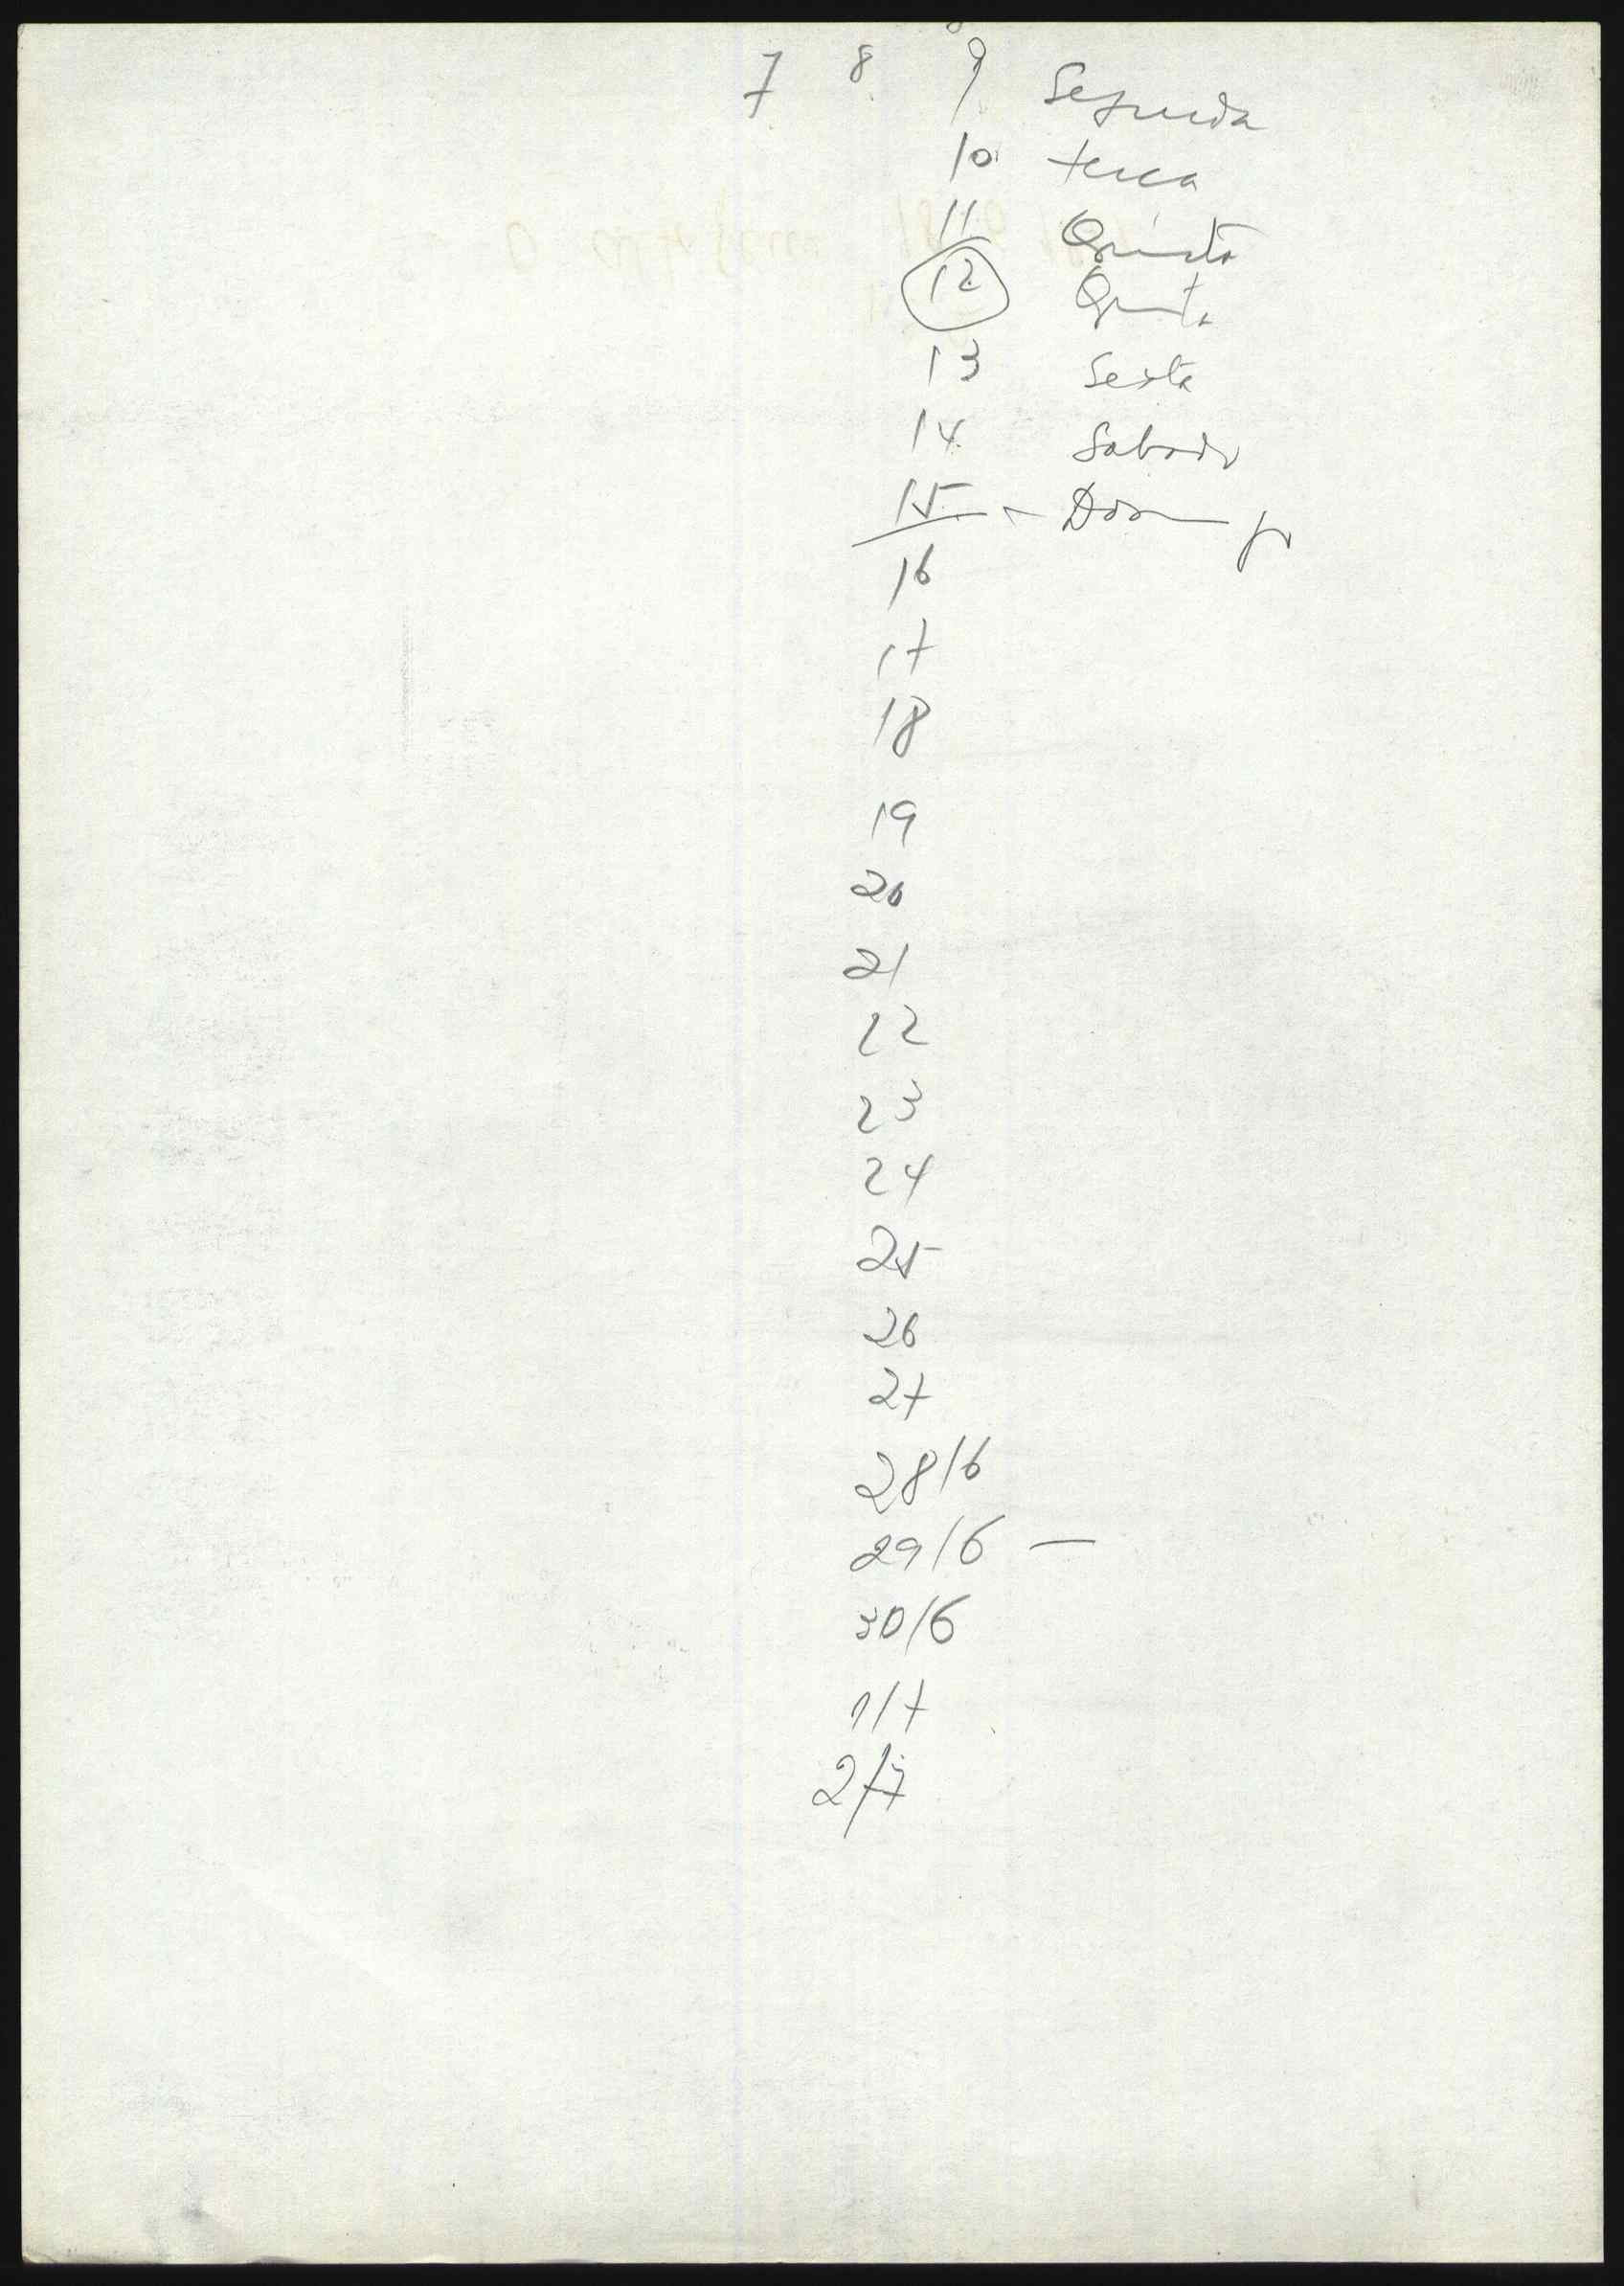 7 8 9 Segunda
10 terca
11 Quinta
12 Quinta
13 Sexta
14 Sabado
15 - Domingo
16
17
18
19
20
21
22
23
24
25
26
27
28/6
29/6 —
30/6
1/7
2/7